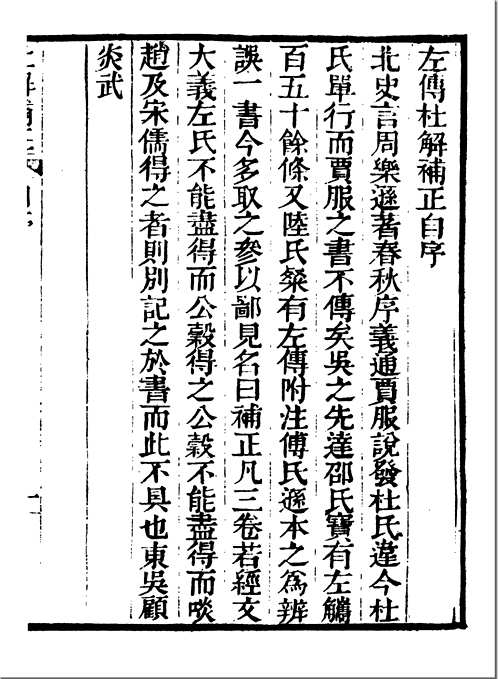 左傳杜解補正自序
北史言周樂遜著春秋序義通賈服說發杜氏違今杜
氏單行而賈服之書不傳矣吳之先達邵氏寶有左觿
百五十餘條又陸氏粲有左傳附注傅氏遜本之為辨
誤一書今多取之參以鄙見名曰補正凡三卷若經文
大義左氏不能盡得而公穀得之公穀不能盡得而啖
趙及宋儒得之者則別記之於書而此不具也東吳顧
炎武